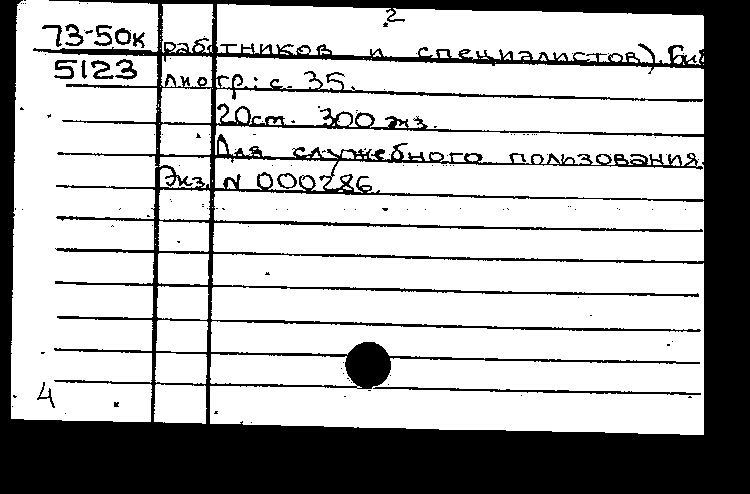 2
73-50к работников и специалистов). Биб
5123 лиогр.: с. 35.
20см. 300 экз.
Для служебного пользования.
Экз. N 000286.
4